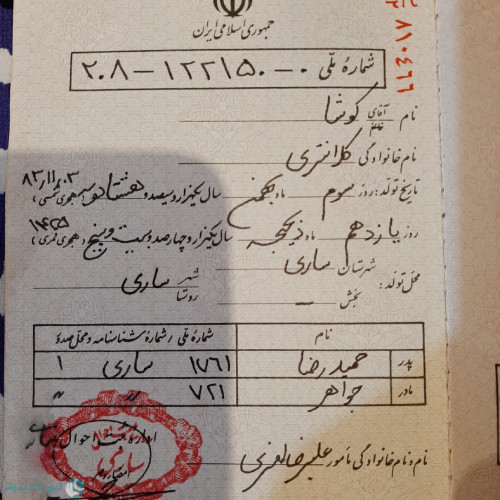 جمهوری اسلامی ایران
شمارهٔ ملّی ۰ – ۱۲۲۱۵۰ – ۲۰۸
نام آقای خانم کوشا
نام خانوادگی کلانتری
۸۳/۱۱/۰۳
تاریخ تولد: روز سوم ماه بهمن سال یکهزار و سیصد و هشتاد و سه (هجری شمسی)
۱۴۲۵
روز یازدهم ماه ذیحجه سال یکهزار و چهارصد و بیست و پنج (هجری قمری)
محل تولد: شهرستان ساری شهر روستا ساری
بخش –
نام شمارهٔ ملّی / شمارهٔ شناسنامه و محل صدور
پدر حمیدرضا ۱۷۶۱ ساری ۱
مادر جواهر ۷۲۱ 〃 〃
ادارهٔ ثبت احوال ساری
نام و نام خانوادگی مأمور علیرضا